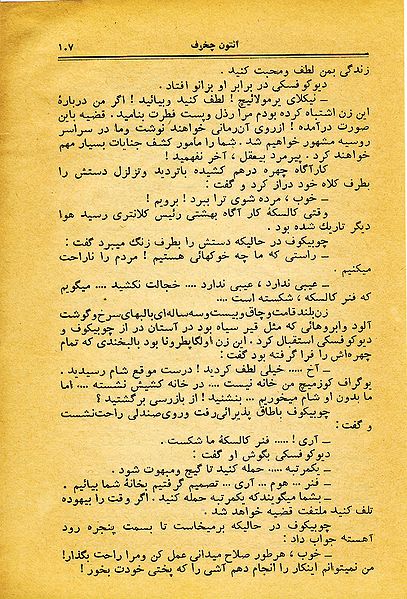 آنتون چخوف
۱۰۷
زندگی بمن لطف ومحبت کنید .
دیوکوفسکی در برابر او بزانو افتاد .
ــ نیکلای یرمولائیچ! لطف کنید وبیائید ! اگر من دربارهٔ
این زن اشتباه کرده بودم مرا رذل وپست فطرت بنامید . قضیه باین
صورت درآمده ! ازروی آن‌رمانی خواهند نوشت وما در سراسر
روسیه مشهور خواهیم شد . شما را مأمور کشف جنایات بسیار مهم
خواهند کرد . پیرمرد بیعقل ، آخر نفهمید !
کارآگاه چهره درهم کشیده باتردید وتزلزل دستش را
بطرف کلاه خود دراز کرد و گفت :
ــ خوب ، مرده شوی ترا ببرد ! برویم !
وقتی کالسکهٔ کار آگاه بهشتی رئیس کلانتری رسید هوا
دیگر تاریك شده بود .
چوبیکوف در حالیکه دستش را بطرف زنگ میبرد گفت :
ــ راستی که ما چه خوکهائی هستیم ! مردم را ناراحت
میکنیم .
ــ عیبی ندارد ، عیبی ندارد .... خجالت نکشید .... میگویم
که فنر کالسکه ، شکسته است ....
زن‌بلندقامت‌وچاق‌وبیست‌وسه‌ساله‌ای‌بالبهای سرخ‌و گوشت
آلود وابروهائی که مثل قیر سیاه بود در آستان در از چوبیکوف و
دیوکوفسکی استقبال کرد . این زن اولگاپطرونا بود بالبخندی که تمام
چهره‌اش را فرا گرفته بود گفت :
ــ آخ ..... خیلی لطف کردید ! درست موقع شام رسیدید .
یوگراف کوزمیچ من خانه نیست .... در خانه کشیش نشسته .... اما
ما بدون او شام میخوریم ... بنشنید ! از بازرسی برگشتید ؟
چوبیکوف باطاق پذیرائی‌رفت وروی‌صندلی راحت‌نشست
و گفت :
ــ آری ! ..... فنر کالسکهٔ ما شکست .
دیوکوفسکی بگوش او گفت :
ــ یکمرتبه ..... حمله کنید تا گیج ومبهوت شود .
ــ فنر ... هوم ... آری ... تصمیم گرفتیم بخانهٔ شما بیائیم .
ــ بشما میگویندکه یکمرتبه حمله کنید . اگر وقت را بیهوده
تلف کنید ملتفت قضیه خواهد شد .
چوبیکوف در حالیکه برمیخاست تا بسمت پنجره رود
آهسته جواب داد :
ــ خوب ، هرطور صلاح میدانی عمل کن ومرا راحت بگذار!
من نمیتوانم اینکار را انجام دهم آشی را که پختی خودت بخور !